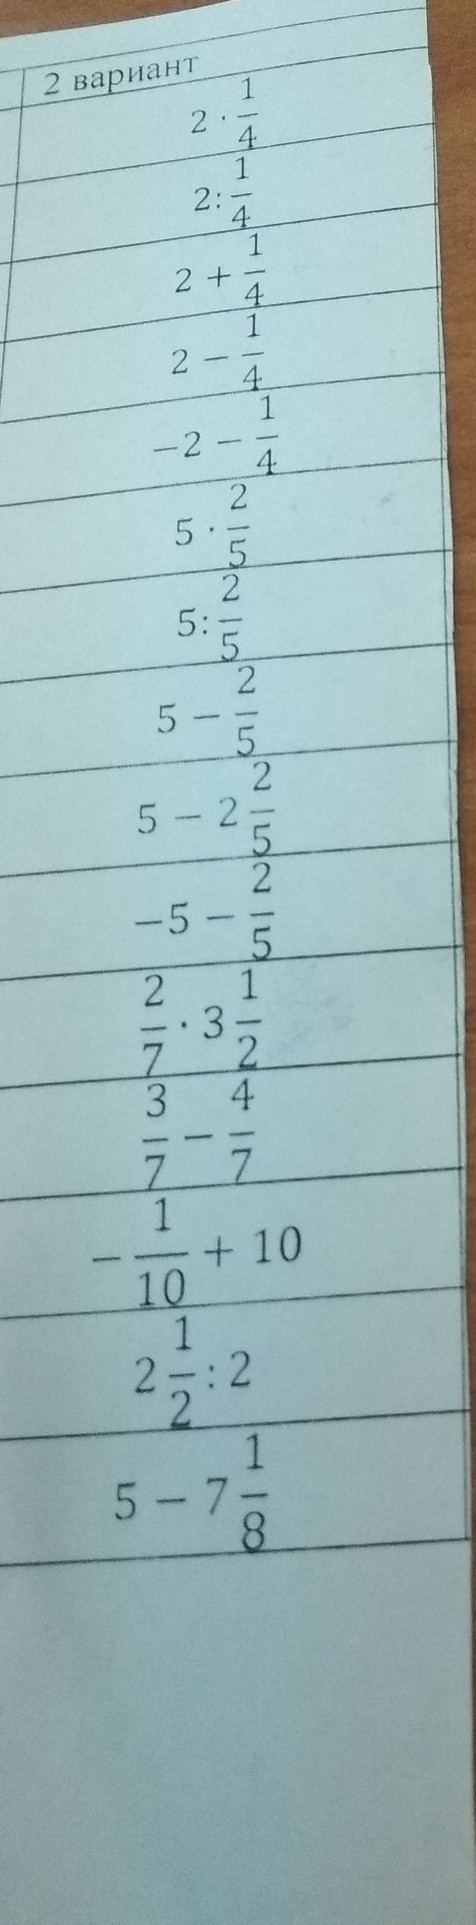 2 вариант
2 · 1/4
2: 1/4
2 + 1/4
2 − 1/4
−2 − 1/4
5 · 2/5
5: 2/5
5 − 2/5
5 − 2 2/5
−5 − 2/5
2/7 · 3 1/2
3/7 − 4/7
− 1/10 + 10
2 1/2 : 2
5 − 7 1/8